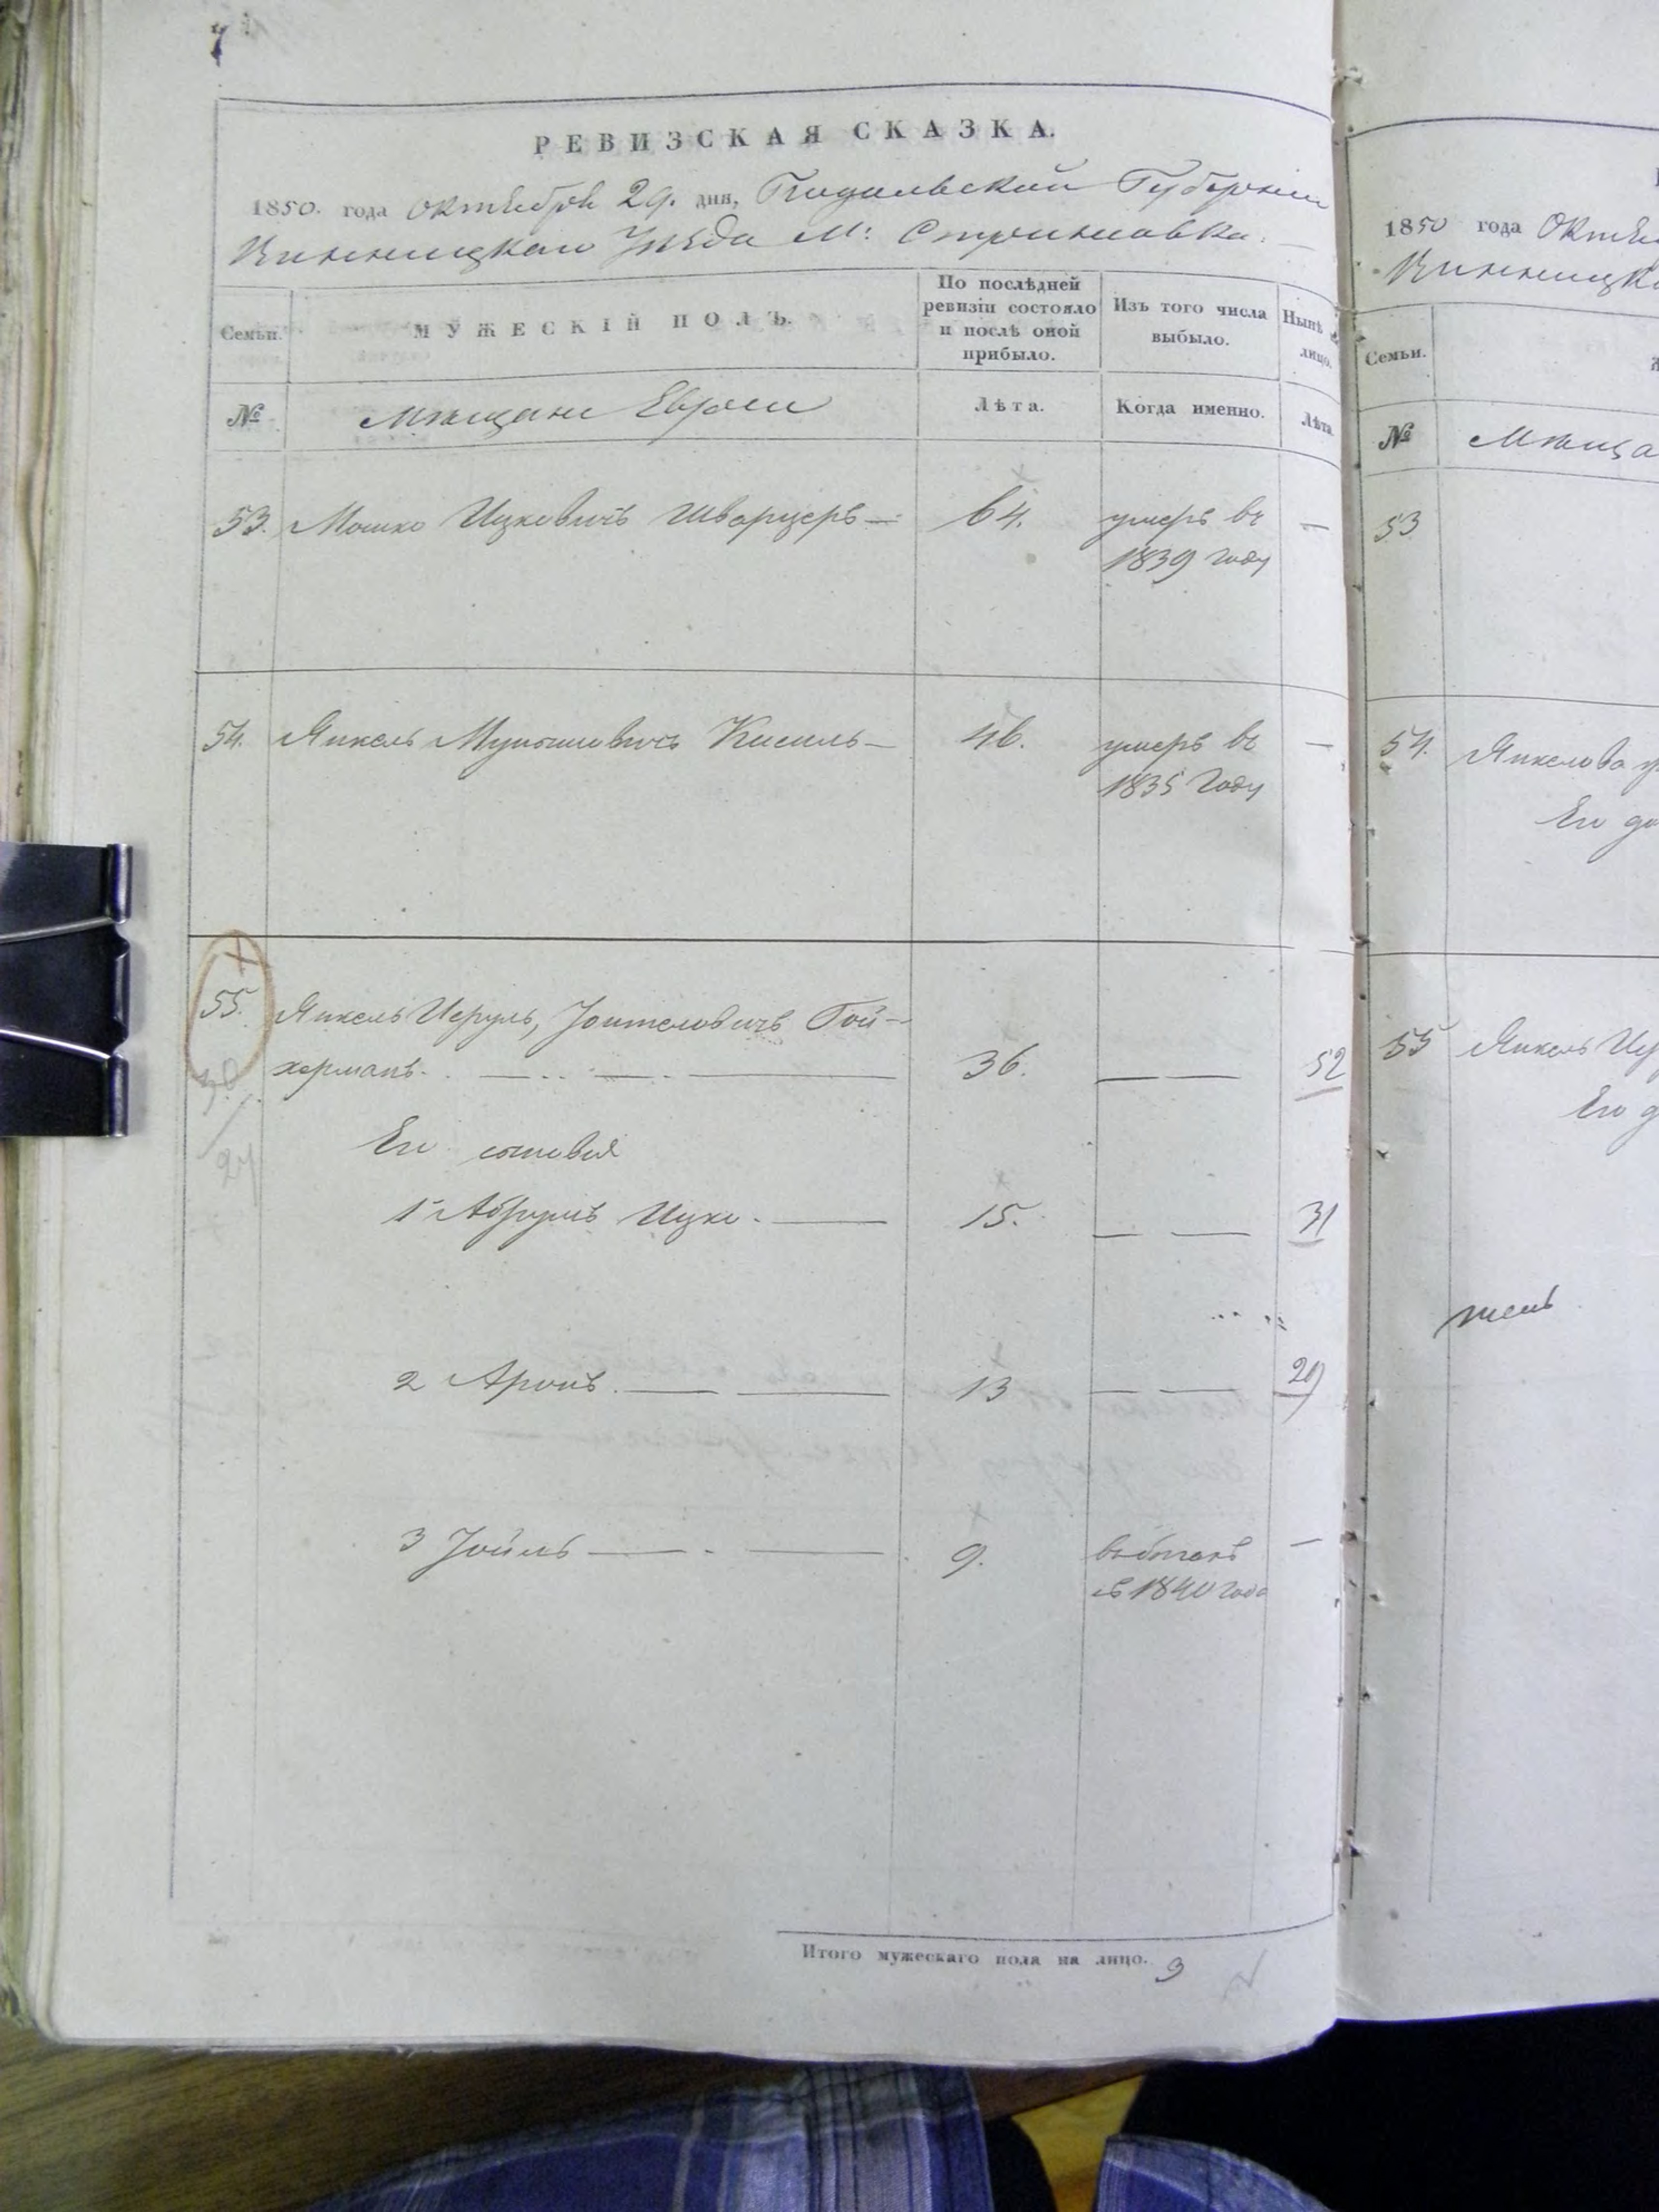 7
РЕВИЗСКАЯ СКАЗКА.
1850. года Октября 29. дня, Подольской Губернии
Винницкаго Уѣзда М: Стрижавка.
Семьи.
МУЖЕСКІЙ ПОЛЪ.
По послѣдней
ревизіи состояло
и послѣ оной
прибыло.
Изъ того числа
выбыло.
Нынѣ
лицо.
№
Мѣщане Евреи
Лѣта.
Когда именно.
Лѣта
53. Мошко Ицковичъ Шварцеръ — 64. умеръ въ —
1839 году
54. Янкель Кисиль — 46. умеръ въ —
1835 году
55. Янкель Исруль, Гой-
херманъ. 36. — — 52
Его сыновья
1й Абрумъ Ицко. — 15. — — 31
2 Аронъ. — — 13 — — 29
3 Іойль — - — 9. —
съ 1840 года
Итого мужескаго пола на лицо. 3
1850 года
Семьи.
№
53
54.
Его
55 Янкель
Его